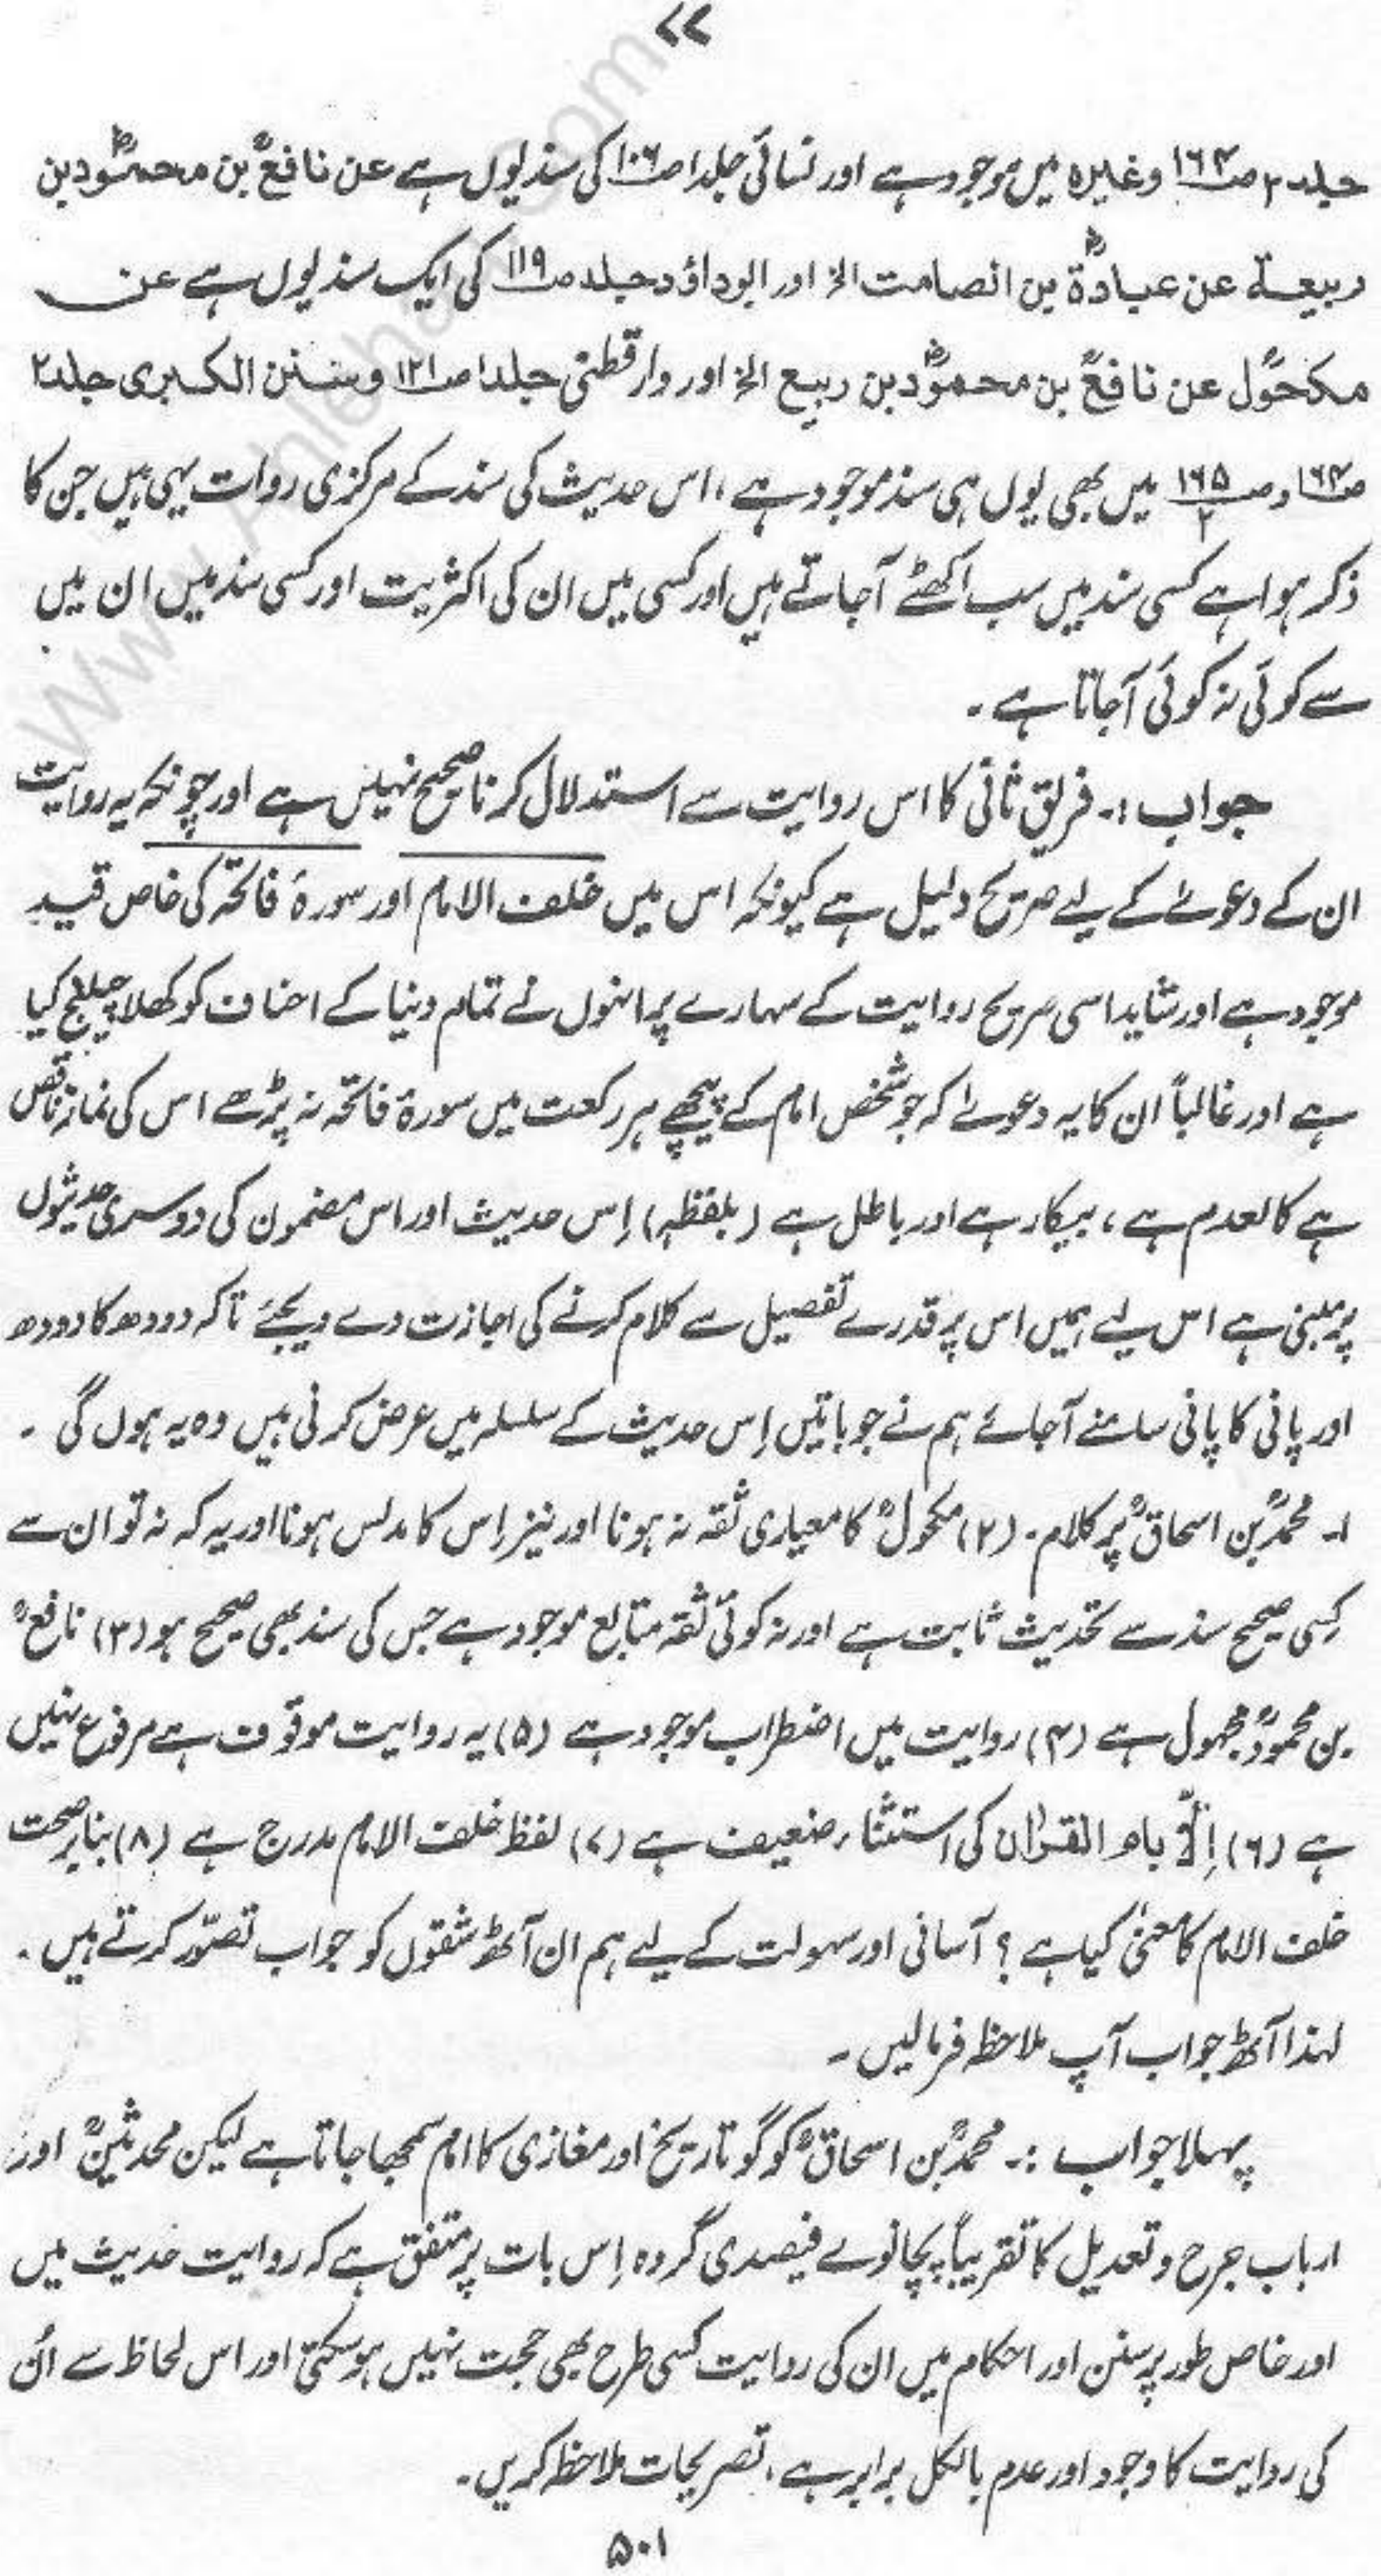 ۷۷
جلد ۲ ص۱۶۴ وغیرہ میں موجود ہے اور نسائی جلد ا ص۱۰۶ کی سند یوں ہے عن نافعؒ بن محمودؓ بن
ربیعة عن عبادةؓ بن الصامت الخ اور ابوداؤد جلد ص۱۱۹ کی ایک سند یوں ہے عن
مکحولؒ عن نافعؒ بن محمودؓ بن ربیع الخ اور دارقطنیؒ جلد ا ص۱۲۱ و سنن الکبری جلد ۲
ص۱۶۴ و ص۱۶۵/۲ میں بھی یوں ہی سند موجود ہے، اس حدیث کی سند کے مرکزی روات یہی ہیں جن کا
ذکر ہوا ہے کسی سند میں سب اکٹھے آجاتے ہیں اور کسی میں ان کی اکثریت اور کسی سند میں ان میں
سے کوئی نہ کوئی آجاتا ہے ۔
جواب :۔ فریق ثانی کا اس روایت سے استدلال کرنا صحیح نہیں ہے اور چونکہ یہ روایت
ان کے دعوےٰ کے لیے صریح دلیل ہے کیونکہ اس میں خلف الامام اور سورۂ فاتحہ کی خاص قید
موجود ہے اور شاید اسی صریح روایت کے سہارے پر انہوں نے تمام دنیا کے احناف کو کھلا چیلنج کیا
ہے اور غالباً ان کا یہ دعوےٰ کہ جو شخص امام کے پیچھے ہر رکعت میں سورۂ فاتحہ نہ پڑھے اس کی نماز ناقص
ہے کالعدم ہے، بیکار ہے اور باطل ہے (بلفظہ) اِس حدیث اور اس مضمون کی دوسری حدیثوں
پر مبنی ہے اس لیے ہمیں اس پر قدرے تفصیل سے کلام کرنے کی اجازت دے دیجئے تاکہ دودھ کا دودھ
اور پانی کا پانی سامنے آجائے ہم نے جو باتیں اِس حدیث کے سلسلہ میں عرض کرنی ہیں وہ یہ ہوں گی ۔
۱۔ محمدؒ بن اسحاقؒ پر کلام ۔ (۲) مکحولؒ کا معیاری ثقہ نہ ہونا اور نیز اِس کا مدلس ہونا اور یہ کہ نہ تو ان سے
کِسی صحیح سند سے تحدیث ثابت ہے اور نہ کوئی ثقہ متابع موجود ہے جس کی سند بھی صحیح ہو (۳) نافعؒ
بن محمودؒ مجہول ہے (۴) روایت میں اضطراب موجود ہے (۵) یہ روایت موقوف ہے مرفوع نہیں
ہے (۶) اِلَّا بام القرآن کی استثناء ضعیف ہے (۷) لفظ خلف الامام مدرج ہے (۸) بنابر صحت
خلف الامام کا معنیٰ کیا ہے ؟ آسانی اور سہولت کے لیے ہم ان آٹھ شقوں کو جواب تصوّر کرتے ہیں ۔
لہذا آٹھ جواب آپ ملاحظہ فرمالیں ۔
پہلا جواب :۔ محمدؒ بن اسحاقؒ کو گو تاریخ اور مغازی کا امام سمجھا جاتا ہے لیکن محدثینؒ اور
ارباب جرح و تعدیل کا تقریباً پچانوے فیصدی گروہ اِس بات پر متفق ہے کہ روایت حدیث میں
اور خاص طور پر سنن اور احکام میں ان کی روایت کسی طرح بھی حجت نہیں ہوسکتی اور اس لحاظ سے اُن
کی روایت کا وجود اور عدم بالکل برابر ہے ، تصریحات ملاحظہ کریں ۔
۵۰۱